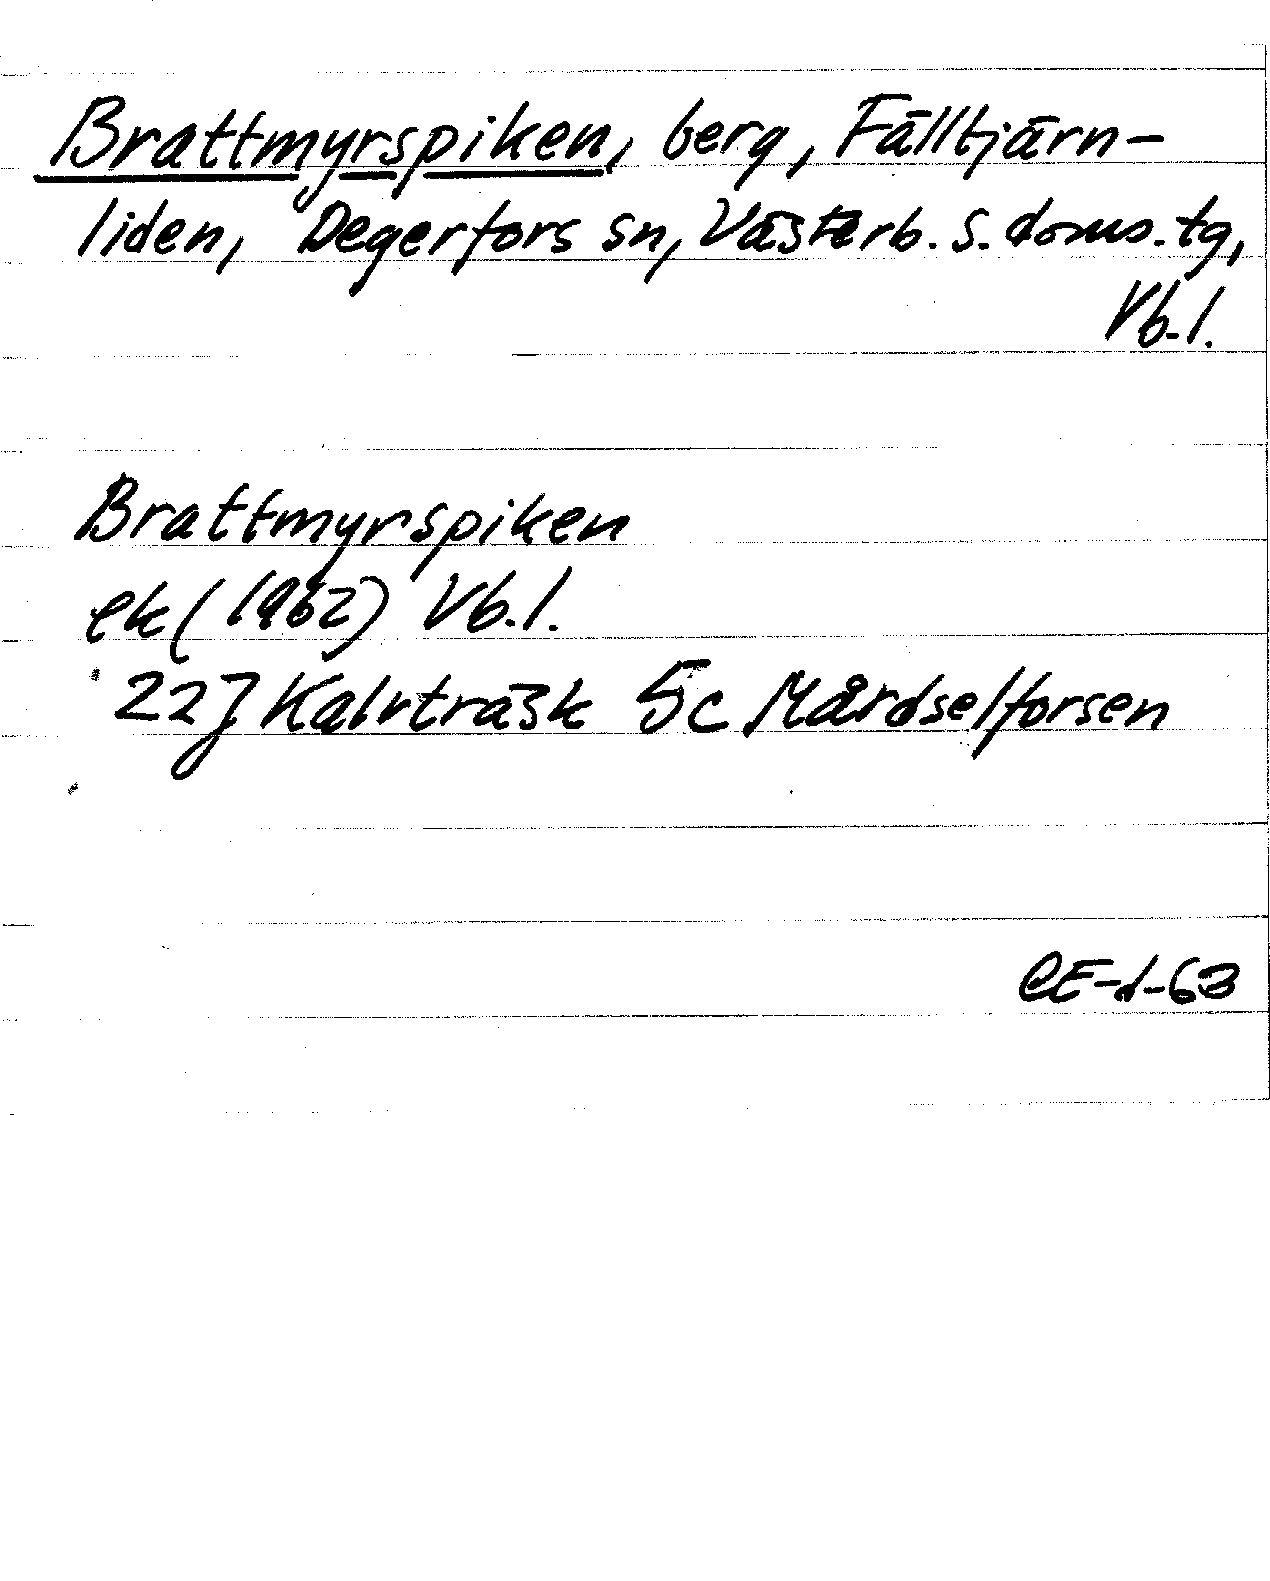 Brattmyrspiken, berg, Fälltjärn-
liden, Degerfors sn, Västerb. s. doms. tg,
Vb. l.
Brattmyrspiken
ek (1962) Vb. l.
22J Kalvträsk 5c Mårdselforsen
CE-d-63